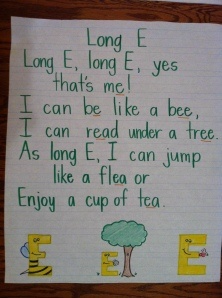 Long E
Long E, long E, yes
that's me!
I can be like a bee,
I can read under a tree.
As long E, I can jump
like a flea or
Enjoy a cup of tea.
E E E